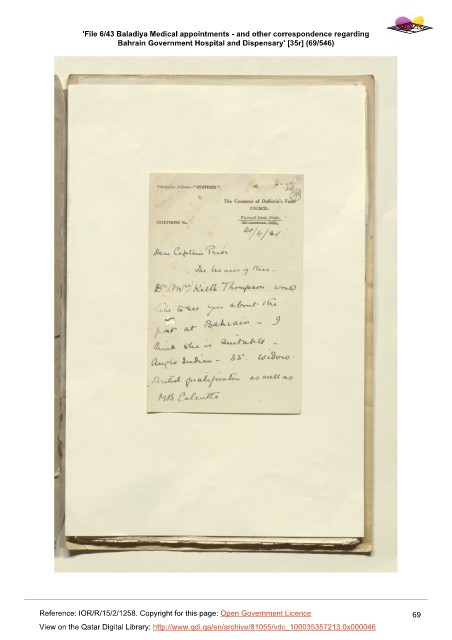 'File 6/43 Baladiya Medical appointments - and other correspondence regarding
Bahrain Government Hospital and Dispensary' [35r] (69/546)
Telegraphic Address—"DUFFERIN".
The Countess of Dufferin's Fund
COUNCIL.
TELEPHONE No.
20/4/41
Dear Captain Prior
The bearer of this -
Dr (Mrs) Keith Thompson would
like to see you about the
post at Bahrain - I
think she is suitable -
Anglo Indian - 35. Widow.
British qualification as well as
MB Calcutta.
Reference: IOR/R/15/2/1258. Copyright for this page: Open Government Licence
View on the Qatar Digital Library: http://www.qdl.qa/en/archive/81055/vdc_100035357213.0x000046
69